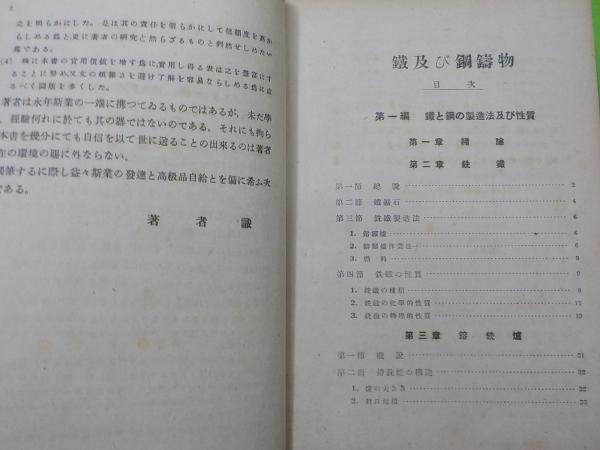 2
之を明らかにした。是は其の責任を明らかにして信頼度を高か
らしめる爲と更に著者の研究と然らざるものと判然せしめたい
爲である。
(4) 殊に本書の實用價値を増す爲に實用し得る表は之を豐富にす
ることに努め又文の煩雜さを避け了解を容易ならしめる爲に成
るべく圖版を多くした。
著者は永年斯業の一端に携つてゐるものではあるが、未だ學
經驗何れに於ても其の器ではないのである。それにも拘ら
本書を幾分にても自信を以て世に送ることの出來るのは著者
在の環境の賜に外ならない。
筆するに際し益々斯業の發達と高級品自給とを偏に希ふ次
である。
著者識
鐵及び鋼鑄物
目次
第一編 鐵と鋼の製造法及び性質
第一章 緒論
第二章 銑鐵
第一節 總說 2
第二節 鐵鑛石 4
第三節 銑鐵製造法 6
1. 鎔鑛爐 6
2. 鎔鑛爐作業法 6
3. 燃料 9
第四節 銑鐵の性質 9
1. 銑鐵の種類 9
2. 銑鐵の化學的性質 11
3. 銑鐵の物理的性質 19
第三章 鎔銑爐
第一節 概說 31
第二節 鎔銑爐の構造 32
1. 爐の大きさ 32
2. 羽口面積 33